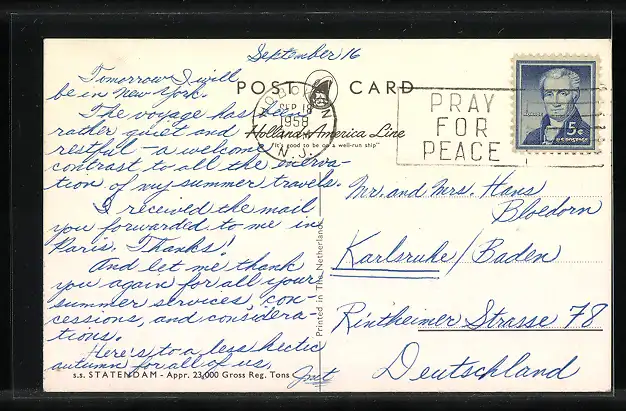 September 16
Tomorrow I will
be in New York.
The voyage has been
rather quiet and
restful - a welcome
contrast to all the enerva-
tion of my summer travels.
I received the mail
you forwarded to me in
Paris. Thanks!
And let me thank
you again for all your
summer services, con-
cessions, and considera-
tions.
Here's to a less hectic
autumn for all of us,
s.s. STATENDAM - Appr. 23,000 Gross Reg. Tons
POST CARD
Holland-America Line
"It's good to be on a well-run ship"
HOBOKEN
SEP 18
1958
N.J.
PRAY
FOR
PEACE
5¢
U.S. POSTAGE
Printed in The Netherlands
Mr. and Mrs. Hans
Bloedorn
Karlsruhe / Baden
Rintheimer Strasse 78
Deutschland